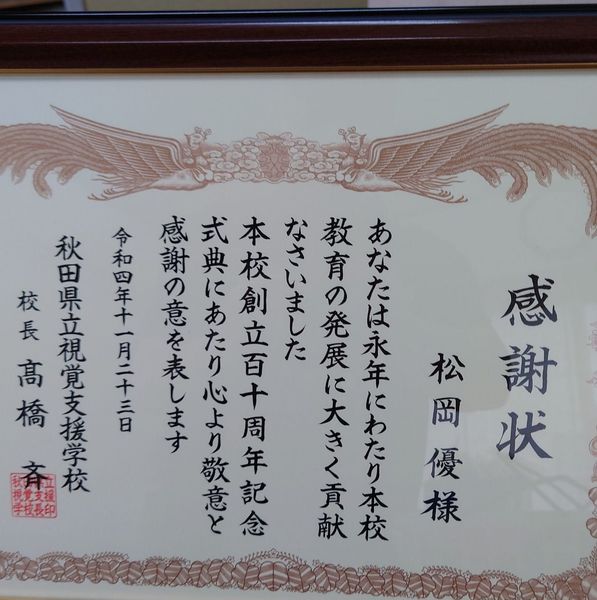 感謝状
松岡優様
あなたは永年にわたり本校
教育の発展に大きく貢献
なさいました
本校創立百十周年記念
式典にあたり心より敬意と
感謝の意を表します
令和四年十一月二十三日
秋田県立視覚支援学校
校長 髙橋 斉